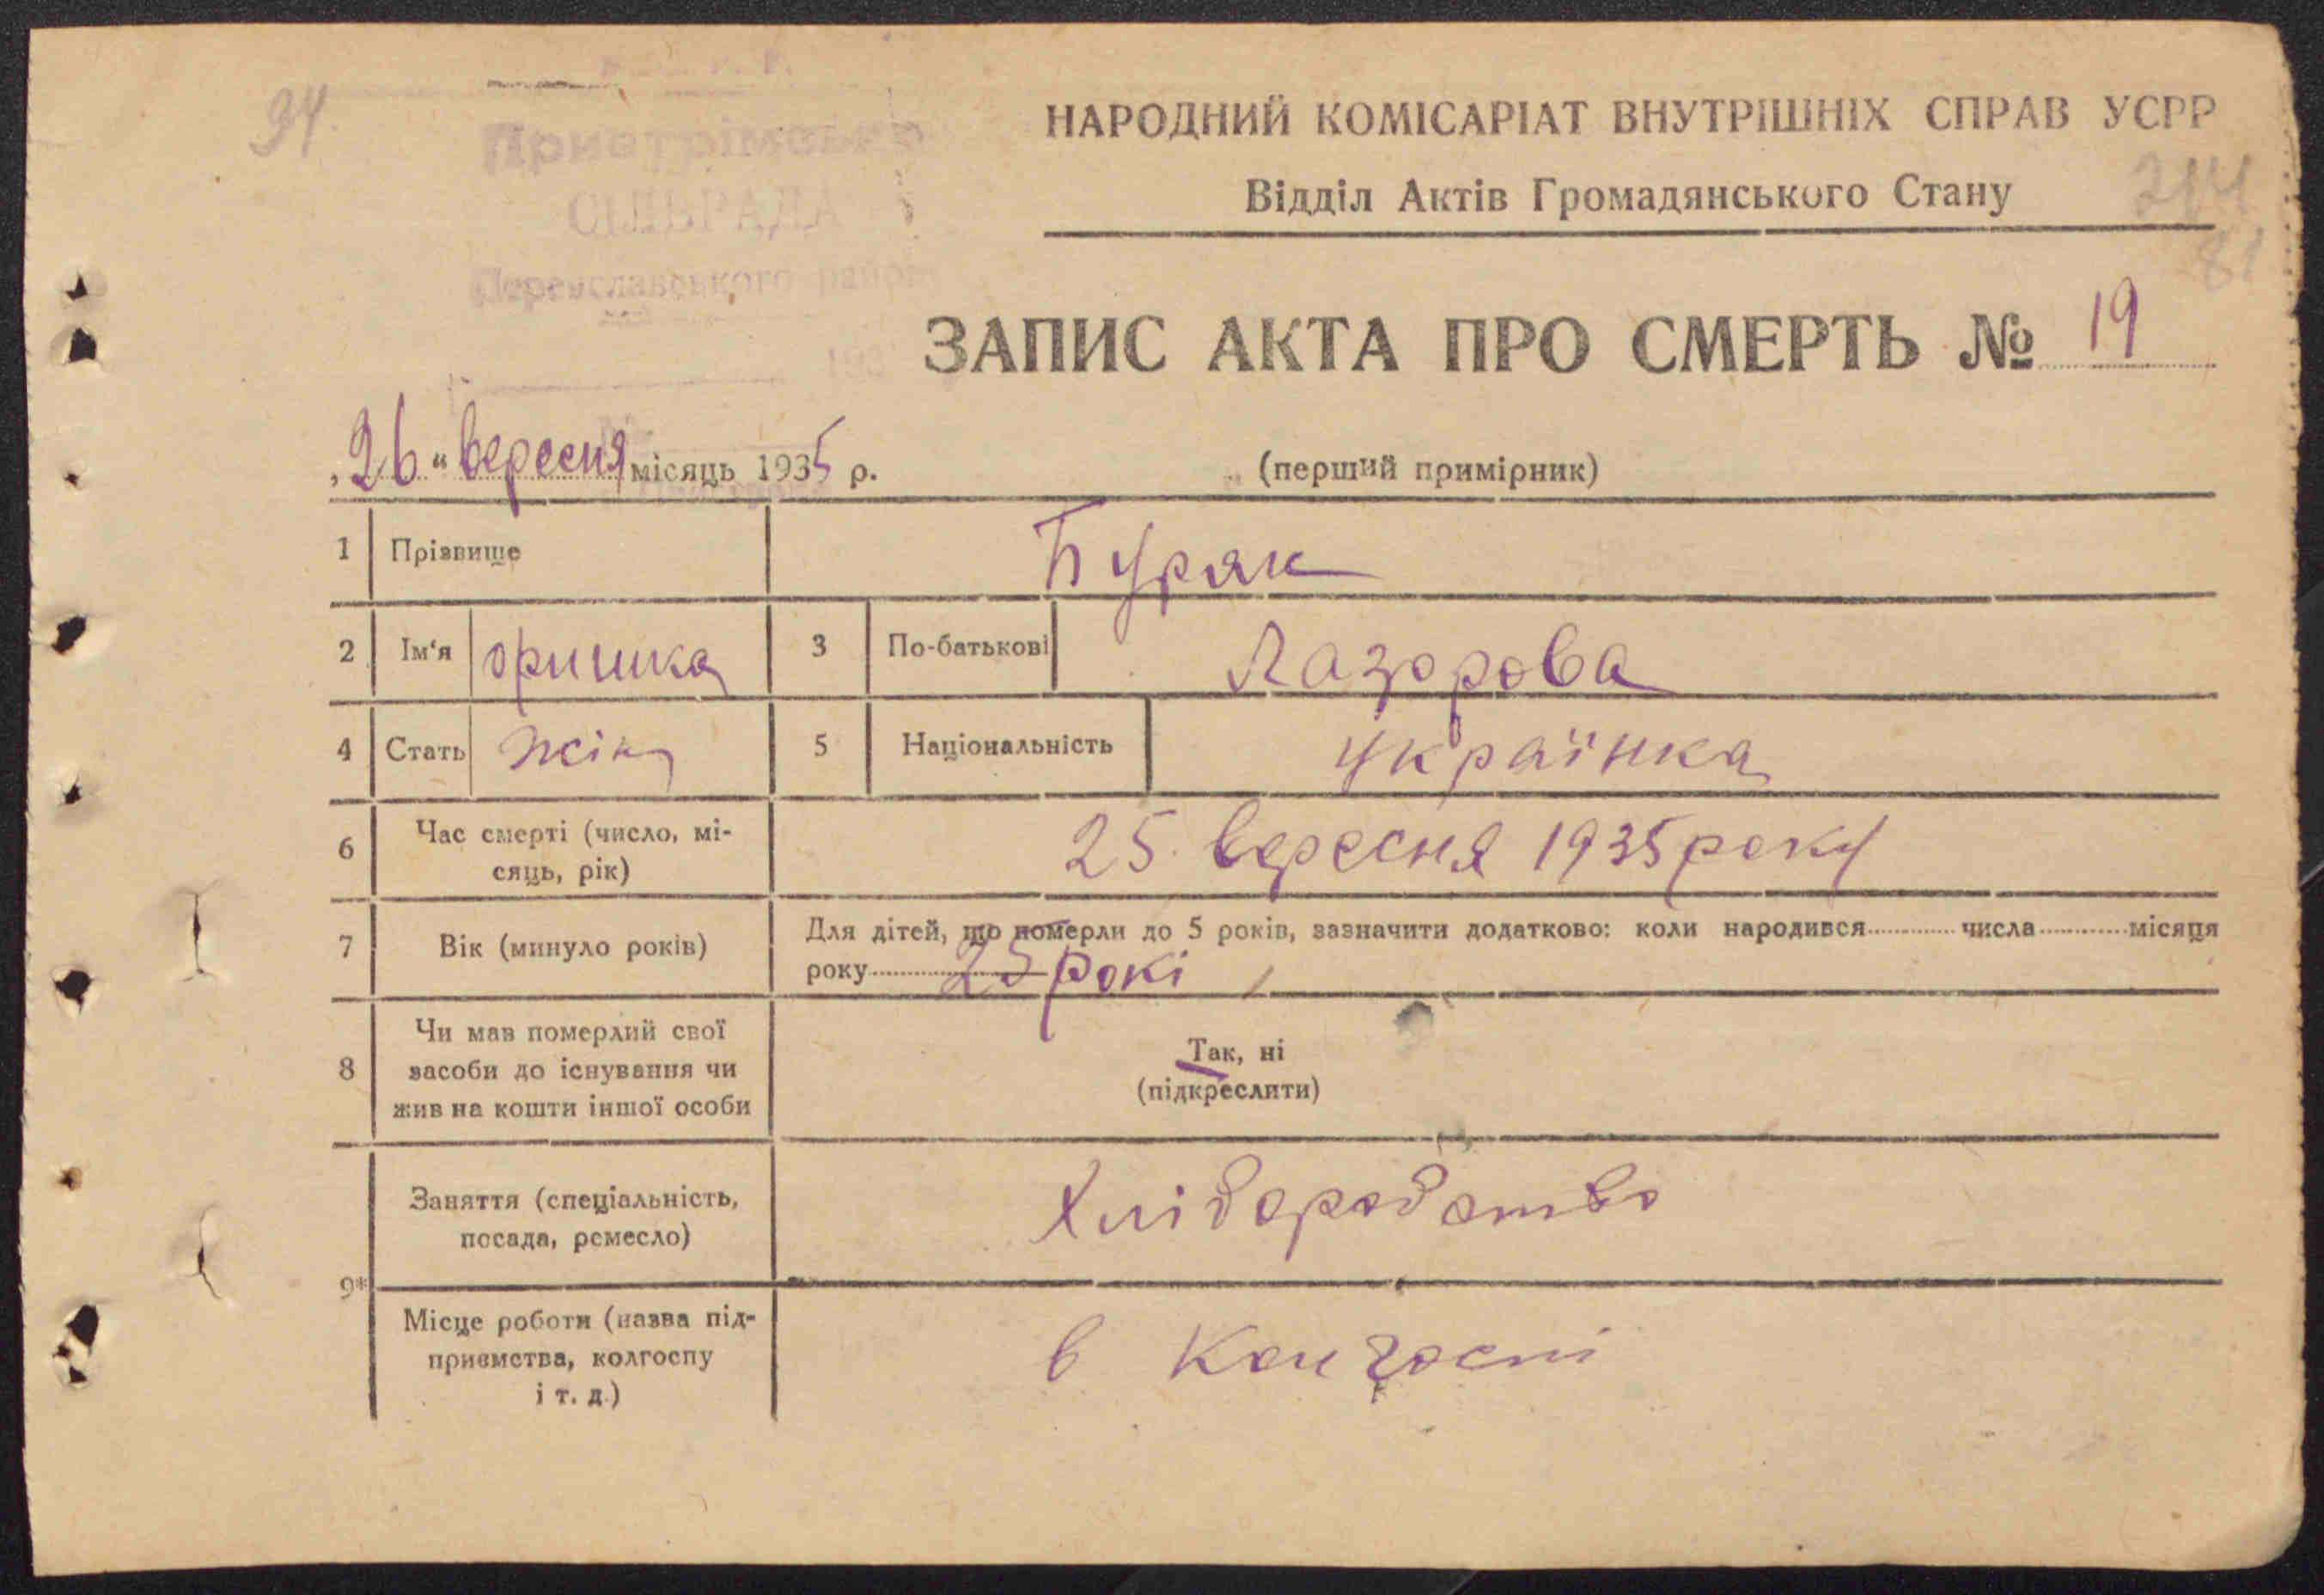 94
Пристрімська
СІЛЬРАДА
Переяславського району
193
НАРОДНИЙ КОМІСАРІАТ ВНУТРІШНІХ СПРАВ УСРР
Відділ Актів Громадянського Стану
214
81
ЗАПИС АКТА ПРО СМЕРТЬ № 19
„26“ вересня місяць 1935 р.
(перший примірник)
1 Прізвище Бурак
2 Ім'я оришка 3 По-батькові Лазорова
4 Стать жін 5 Національність українка
6 Час смерті (число, мі-
сяць, рік) 25 вересня 1935 року
7 Вік (минуло років) Для дітей, що померли до 5 років, зазначити додатково: коли народився числа місяця
року 25 рокі
8 Чи мав померлий свої
засоби до існування чи
жив на кошти іншої особи
Так, ні
(підкреслити)
9* Заняття (спеціальність,
посада, ремесло) Хлібороботво
Місце роботи (назва під-
приємства, колгоспу
і т. д.) в Колгоспі